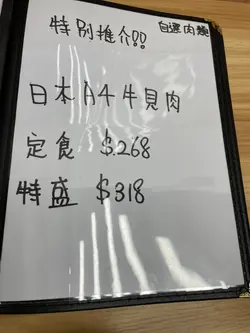 特別推介!! 自選肉類
日本A4牛見肉
定食 $.268
特盛 $318